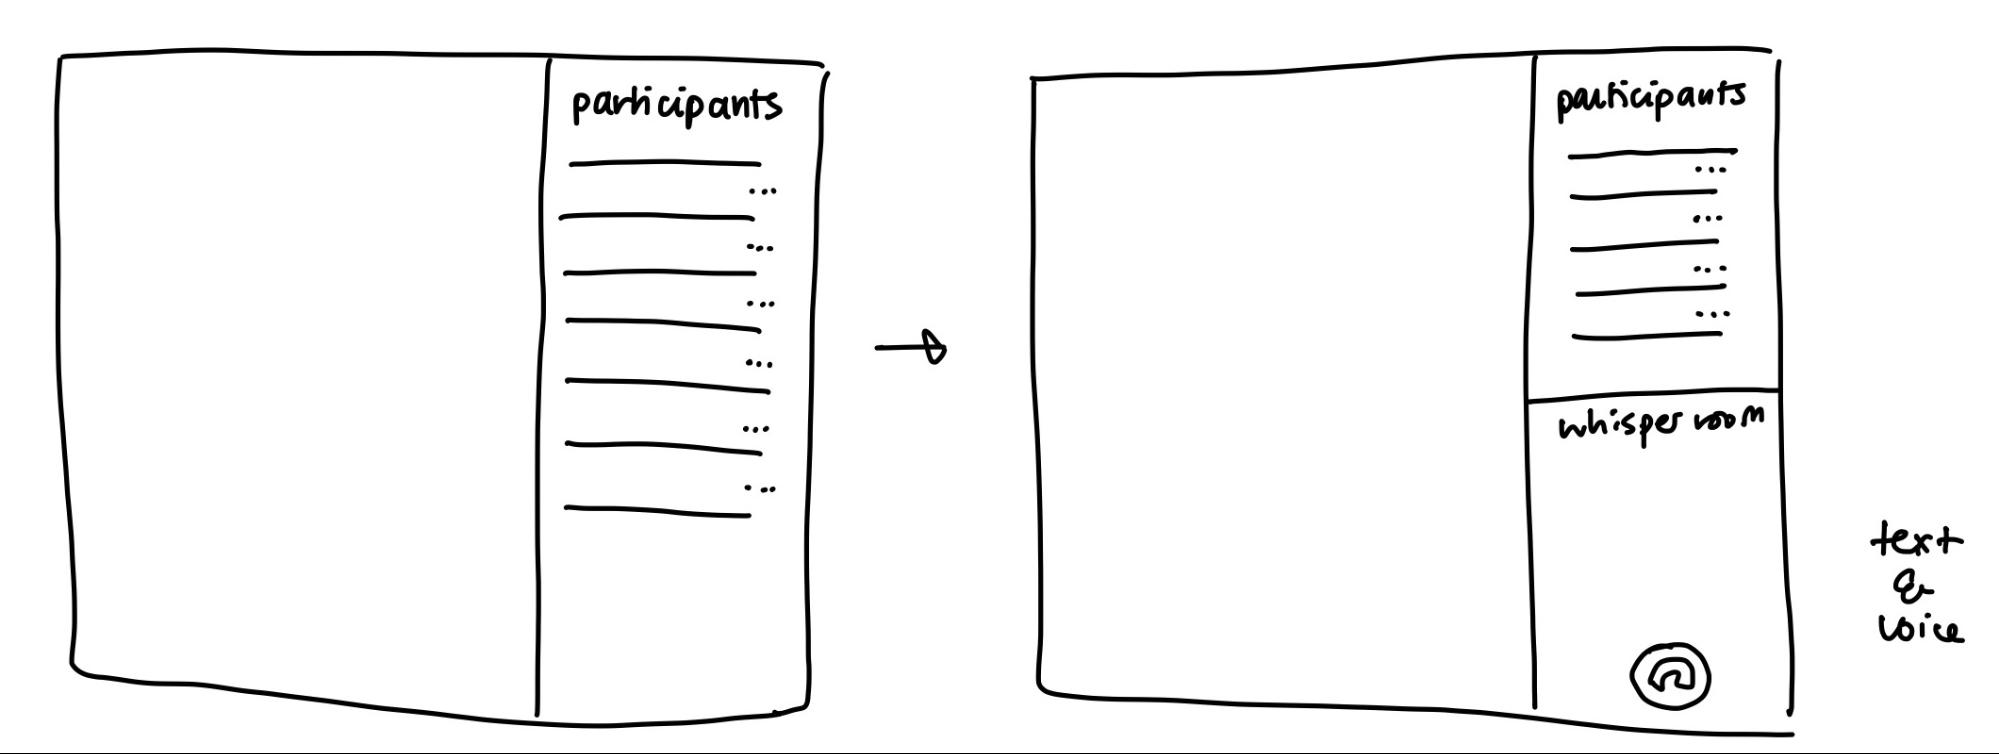 participants
...
...
...
...
...
...
participants
...
...
...
...
whisper room
text
&
voice